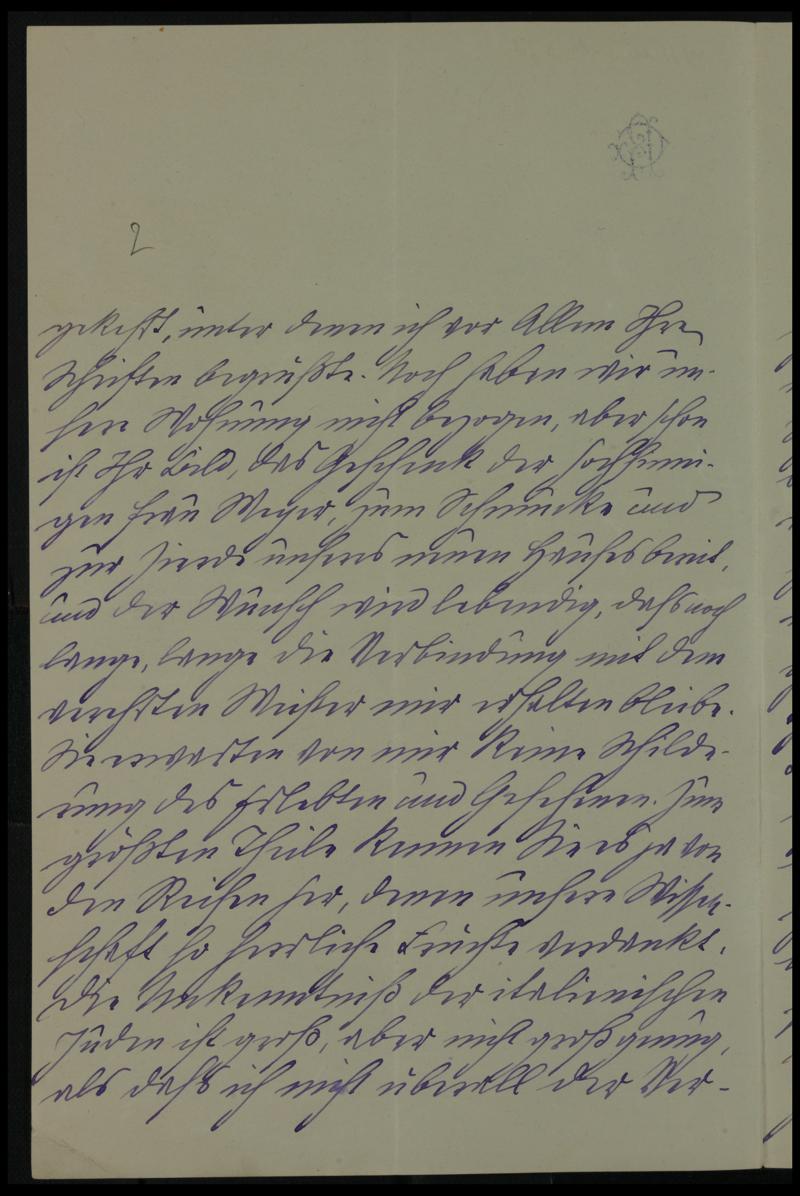 2
gekehrt, unter denen ich vor Allem Ihre
Schriften begrüßte. Noch haben wir un-
sere Wohnung nicht bezogen, aber schon
ist Ihr Bild, das Geschenk der hochsinni-
gen Frau Meyer, zum Schmucke und
zur Zierde unseres neuen Hauses bereit,
und der Wunsch wird lebendig, daß noch
lange, lange die Verbindung mit dem
verehrten Meister mir erhalten bliebe.
Sie erwarten von mir keine Schilde-
rung des Erlebten und Gesehenen. Zum
größten Theile kennen Sie es ja von
den Reisen her, denen unsere Wissen-
schaft so herrliche Früchte verdankt.
Die Unkenntniß der italienischen
Juden ist groß, aber nicht groß genug,
als daß ich nicht überall der Ver-